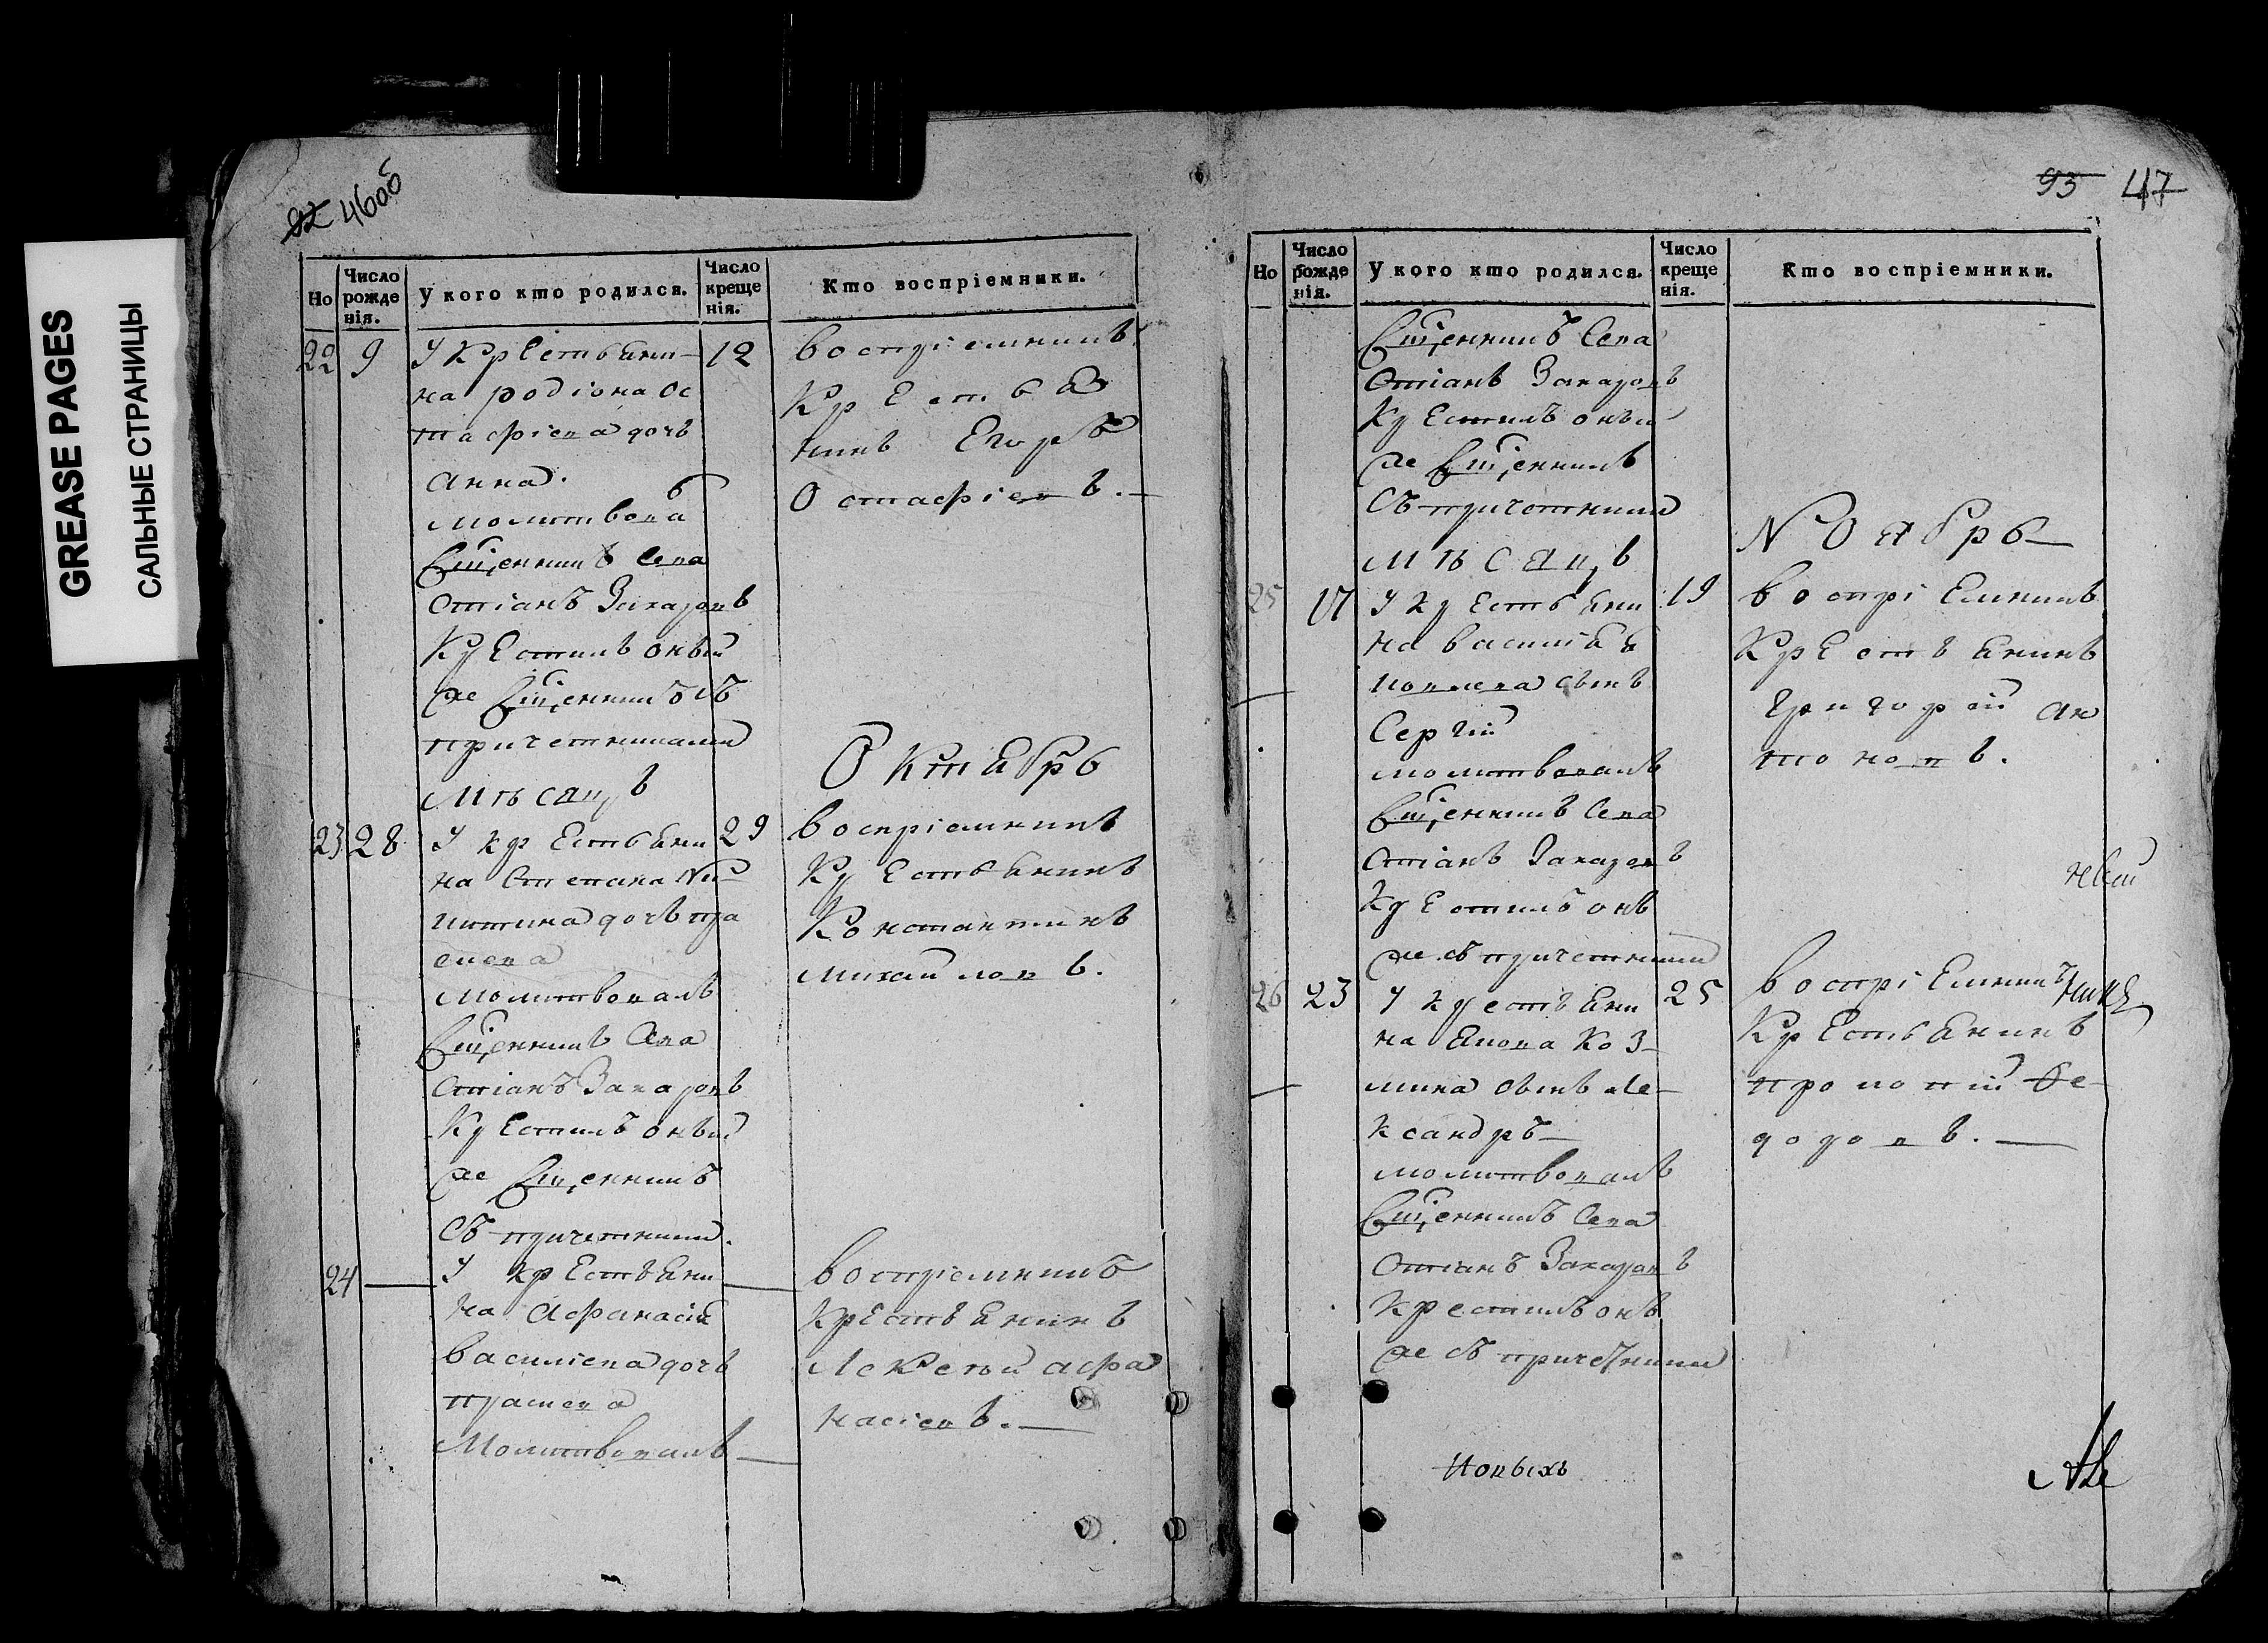 GREASE PAGES
САЛЬНЫЕ СТРАНИЦЫ
92 46об
Но
Число рожде нія.
У кого кто родился.
Число креще нія.
Кто воспріемники.
22 9 У крестьяни- 12
на родіона ос
тафіева дочь
анна.
молитвова
Сщенникъ Сева
стіанъ Захаровъ
крестилъ оный
же Сщенникъ съ
причетниками
мѣсяцъ
воспріемникъ
крестья
нинъ Егоръ
Остафіевъ.
Октябрь
23 28 У крестьяни 29
на Степана Ни
китина дочь пра
сковя
молитвовалъ
Сщенникъ Сева
стіанъ Захаровъ
крестилъ оный
же Сщенникъ
съ причетники.
воспріемникъ
крестьянинъ
Константинъ
михайловъ.
24 У крестьяни
на Афанасія
василіева дочь
молитвовалъ
воспріемникъ
крестьянинъ
афа
насіевъ.
93 47
Но
Число рожде нія.
У кого кто родился.
Число креще нія.
Кто воспріемники.
Сщенникъ Сева
стіанъ Захаровъ
крестилъ оный
же Сщенникъ
съ причетники
мѣсяцъ
Ноябрь
25 17 У крестьяни 19
на василія
сынъ
Сергій
молитвовалъ
Сщенникъ Сева
стіанъ Захаровъ
крестилъ онъ
же съ причетники
воспріемникъ
крестьянинъ
григорій ан
тоновъ.
26 23 У крестьяни 25
на якова Коз-
мина сынъ але-
ксандръ
молитвовалъ
Сщенникъ Сева
стіанъ Захаровъ
крестилъ онъ
же съ причетники
воспріемникъ
крестьянинъ
прокопій Фе-
доровъ.